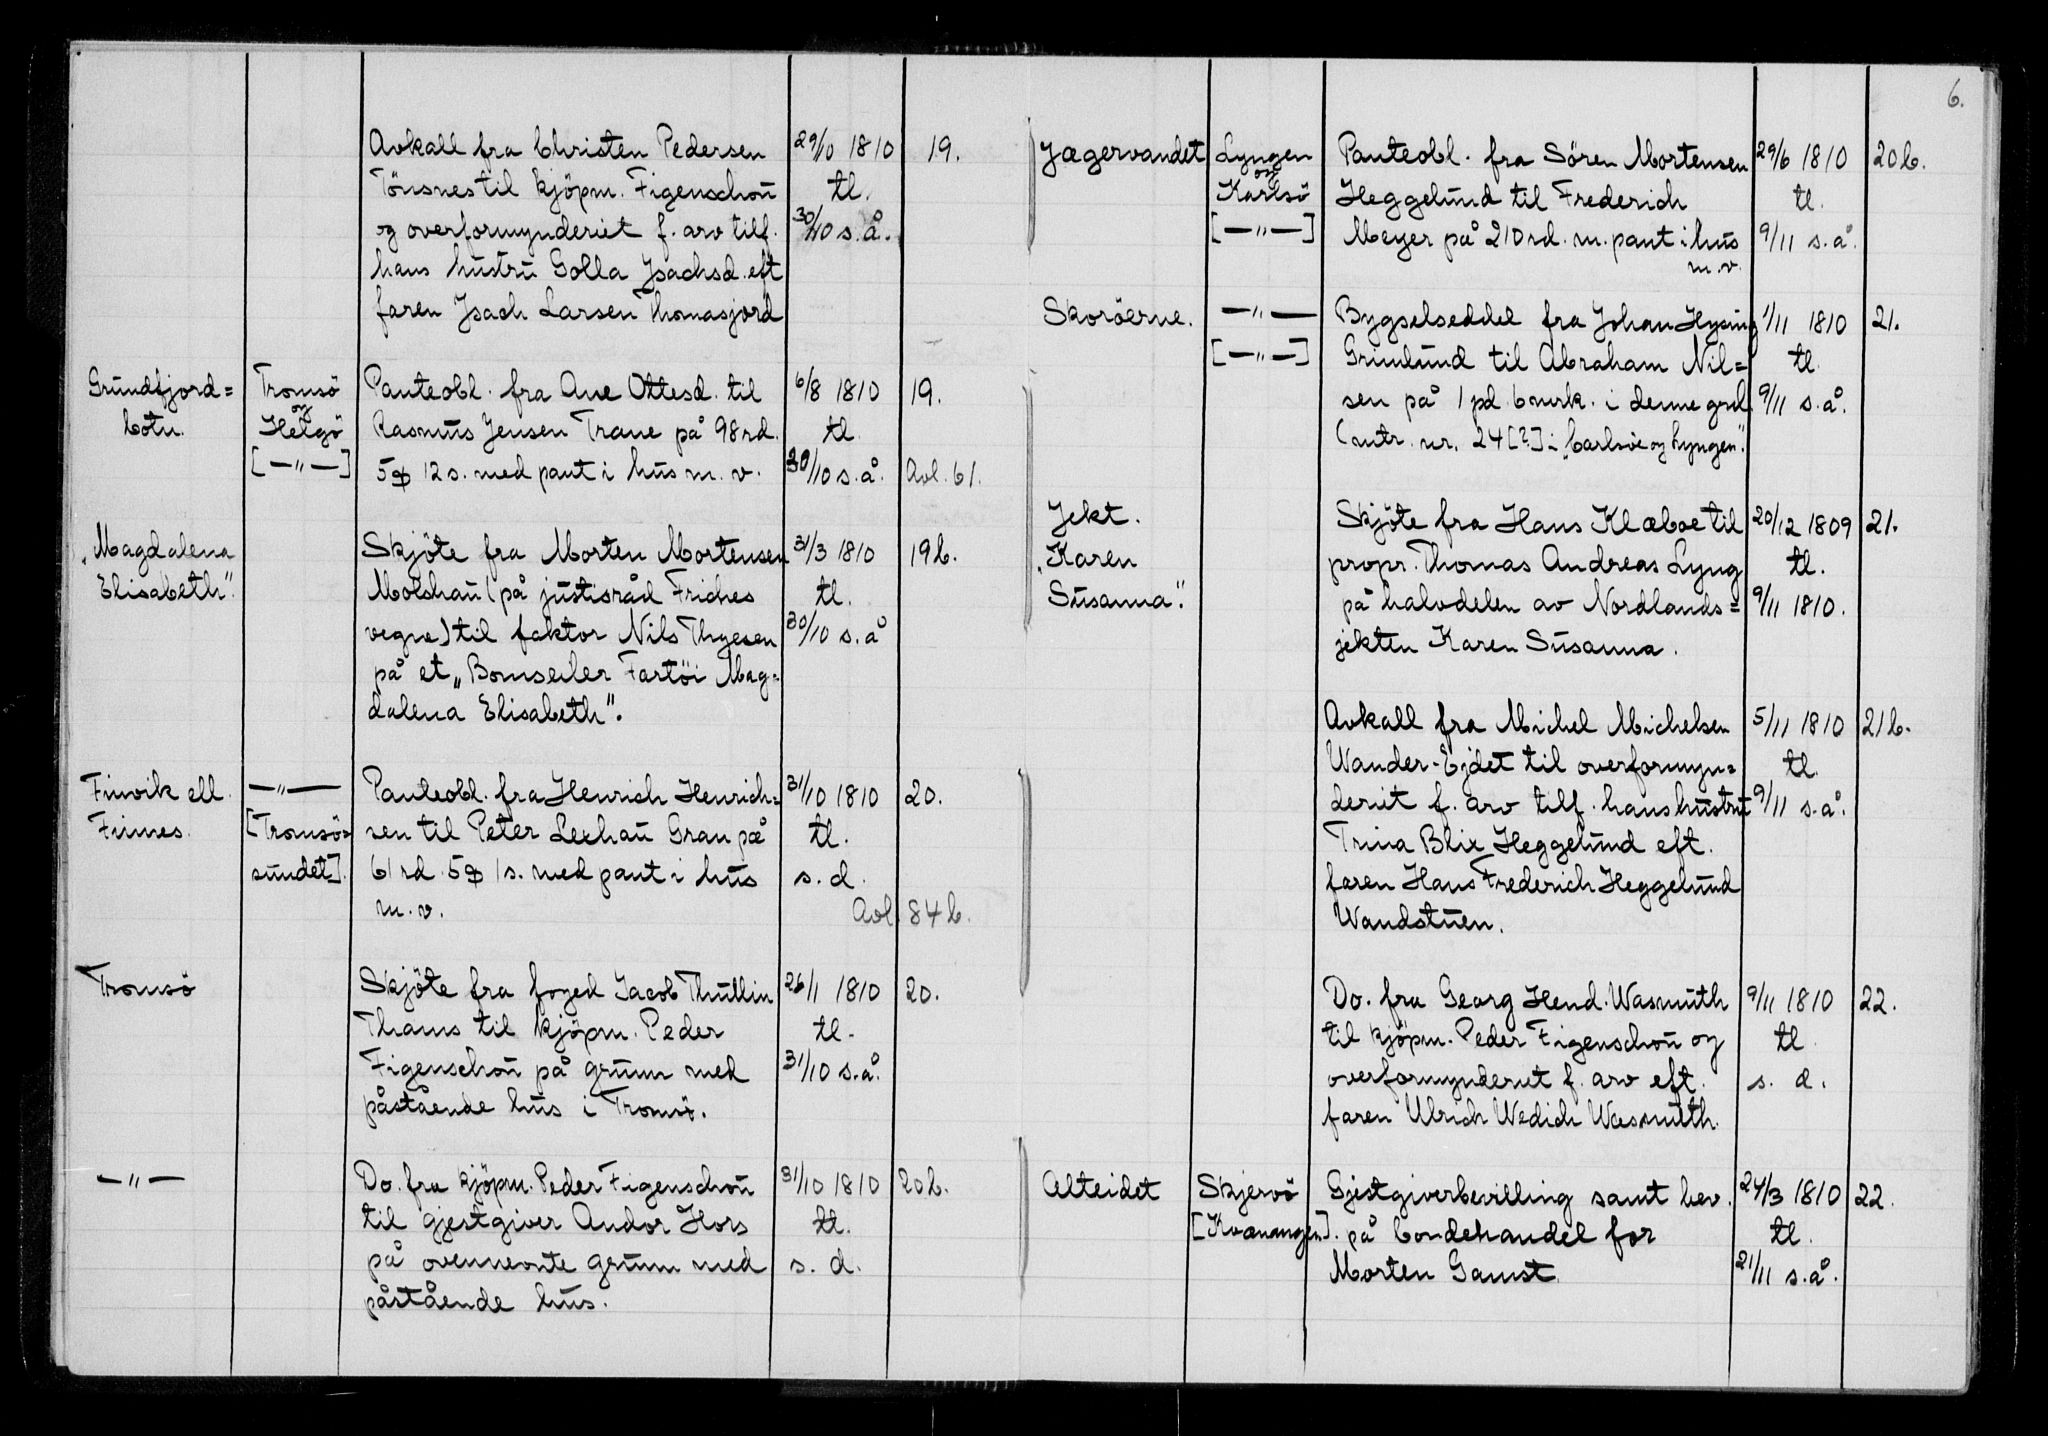 6.
Avkall fra Christen Pedersen 29/10 1810 19.
Tönsnes til kjöpm. Figenschou tl.
og overformynderiet f. arv tilf. 30/10 s.å.
hans hustru Golla Isachsd. eft
faren Isach Larsen Thomasjord
Grundfjord= Tromsö Panteobl. fra Ane Ottesd. til 6/8 1810 19.
botn. og Helgö Rasmus Jensen Trane på 98 rd. tl.
[—"—] 5 12 s. med pant i hus m. v. 30/10 s.å. Avl. 61.
„Magdalena Skjöte fra Morten Mortensen 31/3 1810 19b.
Elisabeth". Molshau (på justisråd Friches tl.
vegne) til faktor Nils Thyesen 30/10 s.å
på et „Bomseiler Fartöi Mag=
dalena Elisabeth".
Finvik ell. —"— Panteobl. fra Henrich Henrich= 31/10 1810 20.
Finnes. [Tromsö= sen til Peter Lexhau Gran på tl.
sundet]. 61 rd. 5 1 s. med pant i hus s. d.
m. v. Avl. 84b.
Tromsö Skjöte fra foged Jacob Thullin 26/1 1810 20.
Thams til kjöpm. Peder tl.
Figenschou på grunn med 31/10 s.å.
påstående hus i Tromsö.
—"— Do. fra kjöpm. Peder Figenschou 31/10 1810 20b.
til gjestgiver Andor Hors tl.
på ovennevnte grunn med s. d.
påstående hus.
Jægervandet Lyngen Panteobl. fra Sören Mortensen 29/6 1810 20b.
og Karlsö Heggelund til Frederich tl.
[—"—] Meyer på 210 rd. m. pant i hus 9/11 s.å.
m.v.
Skoröerne. —"— Bygselseddel fra Johan Hysing 1/11 1810 21.
[—"—] Grimlund til Abraham Nil= tl.
sen på 1 pd. 6 mrk. i denne grd. 9/11 s.å.
(mtr. nr. 24 [?] i „Carlsöe og Lyngen".
Jekt. Skjöte fra Hans Klæboe til 20/12 1809 21.
„Karen propr. Thomas Andreas Lyng tl.
Susanna". på halvdelen av Nordlands= 9/11 1810.
jekten Karen Susanna.
Avkall fra Michel Michelsen 5/11 1810 21b.
Wander-Ejdet til overformyn= tl.
deriet f. arv tilf. hans hustru 9/11 s.å.
Trina Blix Heggelund eft.
faren Hans Frederich Heggelund
Wandstuen.
Do. fra Georg Hend. Wasmuth 9/11 1810 22.
til kjöpm. Peder Figenschou og tl.
overformynderiet f. arv eft. s. d.
faren Ulrich Wedich Wasmuth.
Alteidet Skjervö Gjestgiverbevilling samt bev. 24/3 1810 22.
[Kvænangen]. på bondehandel for tl.
Morten Gamst. 21/11 s.å.